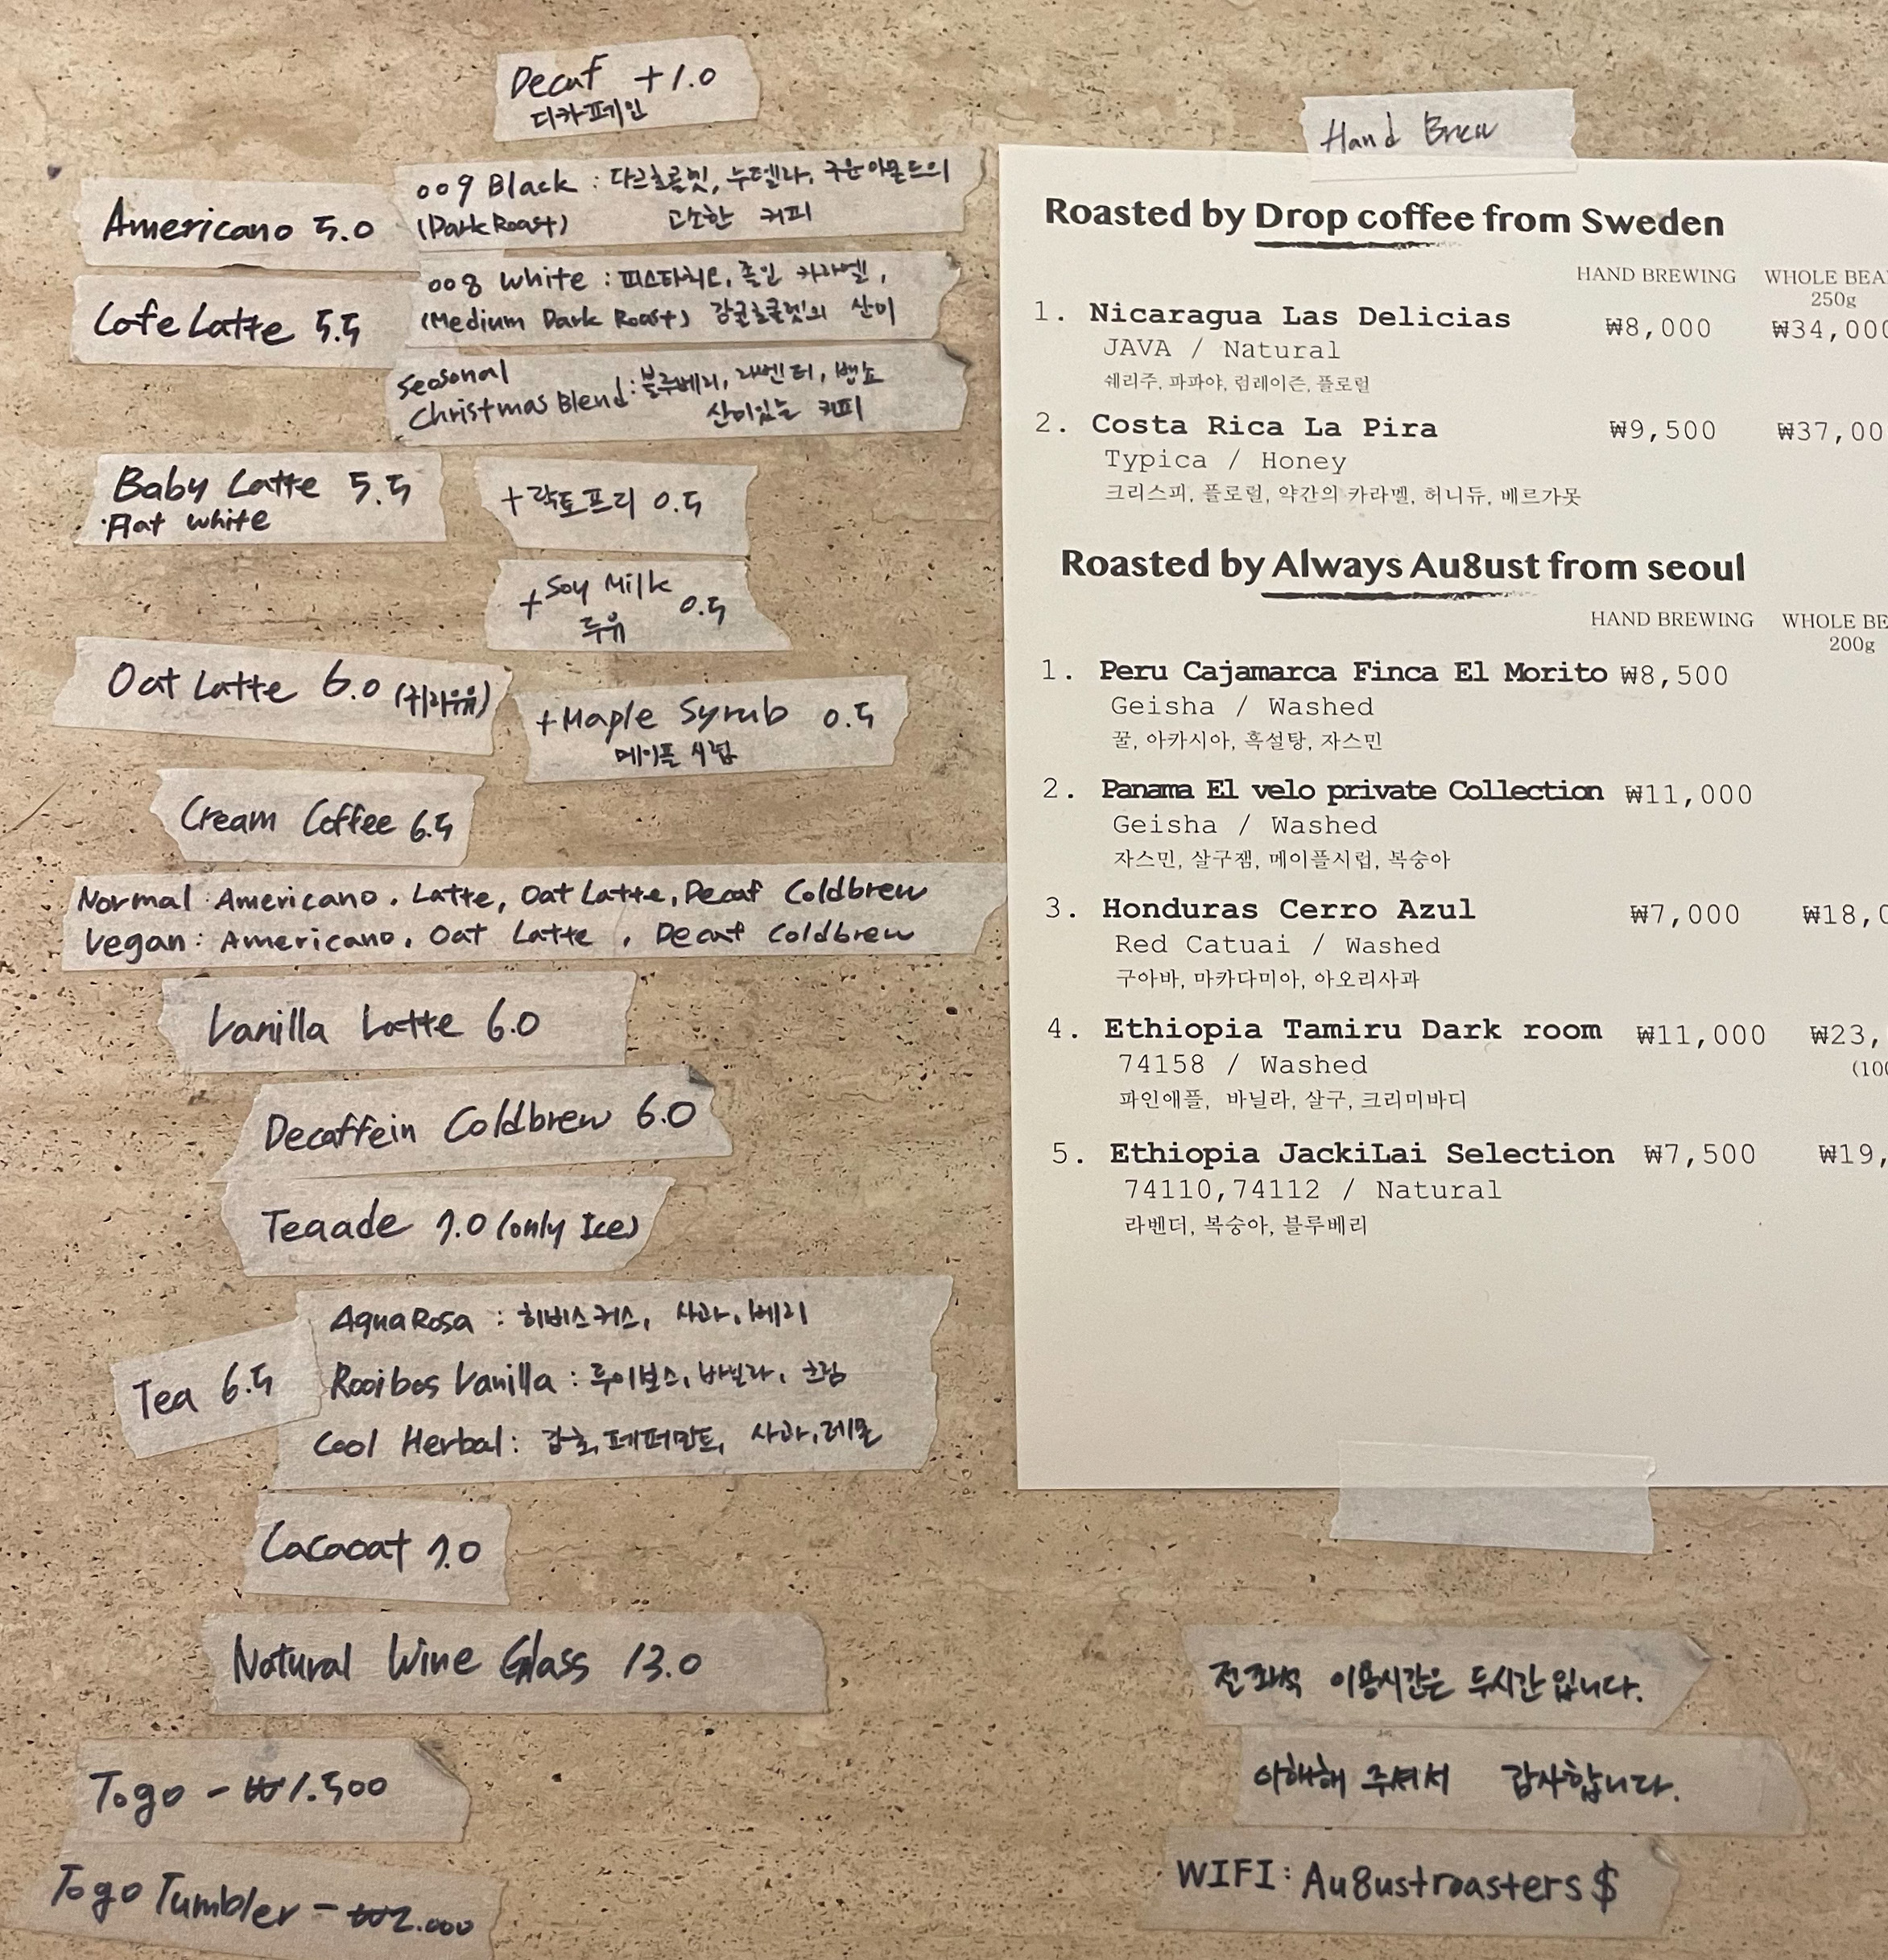 Decaf +1.0
디카페인
Americano 5.0
009 Black : 다크초콜릿, 누텔라, 구운아몬드의
(Dark Roast) 고소한 커피
Cafe Latte 5.5
008 White : 피스타치오, 졸인 카라멜,
(Medium Dark Roast) 감귤초콜렛의 산미
Seasonal
Christmas Blend : 블루베리, 라벤더, 뱅쇼
산미있는 커피
Baby Latte 5.5
·Flat white
+락토프리 0.5
+Soy Milk 0.5
두유
Oat Latte 6.0 (귀리우유)
+Maple Syrub 0.5
메이플 시럽
Cream Coffee 6.5
Normal : Americano, Latte, Oat Latte, Decaf Coldbrew
Vegan : Americano, Oat Latte, Decaf Coldbrew
Vanilla Latte 6.0
Decaffein Coldbrew 6.0
Teaade 7.0 (only Ice)
Tea 6.5
AquaRosa : 히비스커스, 사과, 베리
Rooibos Vanilla : 루이보스, 바닐라, 크림
Cool Herbal : 감초, 페퍼민트, 사과, 레몬
Cacaoat 7.0
Natural Wine Glass 13.0
Togo - ₩1.500
Togo Tumbler - ₩2.000
Hand Brew
Roasted by Drop coffee from Sweden
HAND BREWING WHOLE BEA
250g
1. Nicaragua Las Delicias ₩8,000 ₩34,000
JAVA / Natural
쉐리주, 파파야, 럼레이즌, 플로럴
2. Costa Rica La Pira ₩9,500 ₩37,00
Typica / Honey
크리스피, 플로럴, 약간의 카라멜, 허니듀, 베르가못
Roasted by Always Au8ust from seoul
HAND BREWING WHOLE BE
200g
1. Peru Cajamarca Finca El Morito ₩8,500
Geisha / Washed
꿀, 아카시아, 흑설탕, 자스민
2. Panama El velo private Collection ₩11,000
Geisha / Washed
자스민, 살구잼, 메이플시럽, 복숭아
3. Honduras Cerro Azul ₩7,000 ₩18,0
Red Catuai / Washed
구아바, 마카다미아, 아오리사과
4. Ethiopia Tamiru Dark room ₩11,000 ₩23,
74158 / Washed (100
파인애플, 바닐라, 살구, 크리미바디
5. Ethiopia JackiLai Selection ₩7,500 ₩19,
74110,74112 / Natural
라벤더, 복숭아, 블루베리
전 좌석 이용시간은 두시간 입니다.
이해해 주셔서 감사합니다.
WIFI : Au8ustroasters$